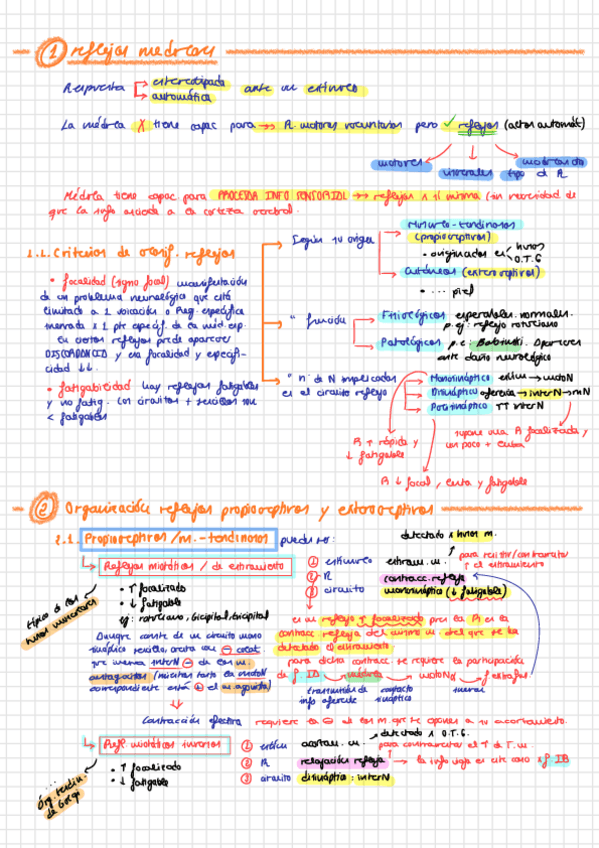 1 reflejos medulares
Respuesta → estereotipada
→ automática
ante un estímulo
La médula X tiene capac para →→ R. motores voluntarios pero ✓ reflejos (actos automát)
motores
viscerales
tipo d R.
Médula tiene capac. para PROCESAR INFO SENSORIAL →→ reflejos
que la info acceda a la corteza cerebral.
1.1. Criterios de clasif. reflejos
• focalidad (signo focal) manifestación
de un problema neurológico que está
limitado a 1 ubicación o específica
inervada x 1 pte específ. de la méd. esp.
En ciertos reflejos puede aparecer
DISCORDANCIA y esa focalidad y especifi-
cidad ↓↓.
• fatigabilidad hay reflejos fatigables
y no fatig. Los circuitos + sencillos son
< fatigables
Según su origen
Músculo-tendinosos
(propioceptivos)
• originados en husos
O.T.G
Cutáneos (exteroceptivos)
• ... piel
" función
Fisiológicos esperables. normales.
p.ej: reflejo rotuliano
Patológicos p.e: Babinski. Aparecen
ante daño neurológico
" nº de N implicadas
en el circuito reflejo
Monosináptico → motoN
Disináptico aferencia → interN → mN
Polisináptico ↑↑ interN
R + rápida y
↓ fatigable
supone una R focalizada y
un poco + lenta
R ↓ focal, lenta y fatigable
2 Organización reflejos propioceptivos y exteroceptivos
2.1. Propioceptivos/m.-tendinosos pueden ser:
Reflejos miotáticos / de estiramiento
• ↑ focalizado
• ↓ fatigable
ej: rotuliano, bicipital, tricipital
típico d los
husos musculares
detectado x husos m.
1 estímulo estiram. m. para resistir/contrarrestar
el estiramiento
2 R contracc. refleja
3 circuito monosináptico (↓ fatigable)
es un reflejo ↑ focalizado pues la R es la
contracc refleja del mismo m. del que se ha
detectado el estiramiento
Aunque conste de un circuito mono
sináptico sencillo,
que inerva interN ⊖ de los m.
antagonistas (mientras tanto la motoN
correspondiente está ⊕ el m. agonista)
para dicha contracc. se requiere la participación
de f. IA → médula → motoNα → f extrafus
transmisión de
info aferente
contacto
sináptico
Contracción efectiva requiere la ⊖ de los m. que se oponen a su acortamiento.
Refl. miotáticos inversos
• ↑ focalizado
• ↓ fatigable
Órg. tendin.
de Golgi
detectado x O.T.G.
1 estím acortam. m. para contrarrestar el ↑ de T. m.
2 R relajación refleja → la info viaja en este caso x f. IB
3 circuito disináptico: interN